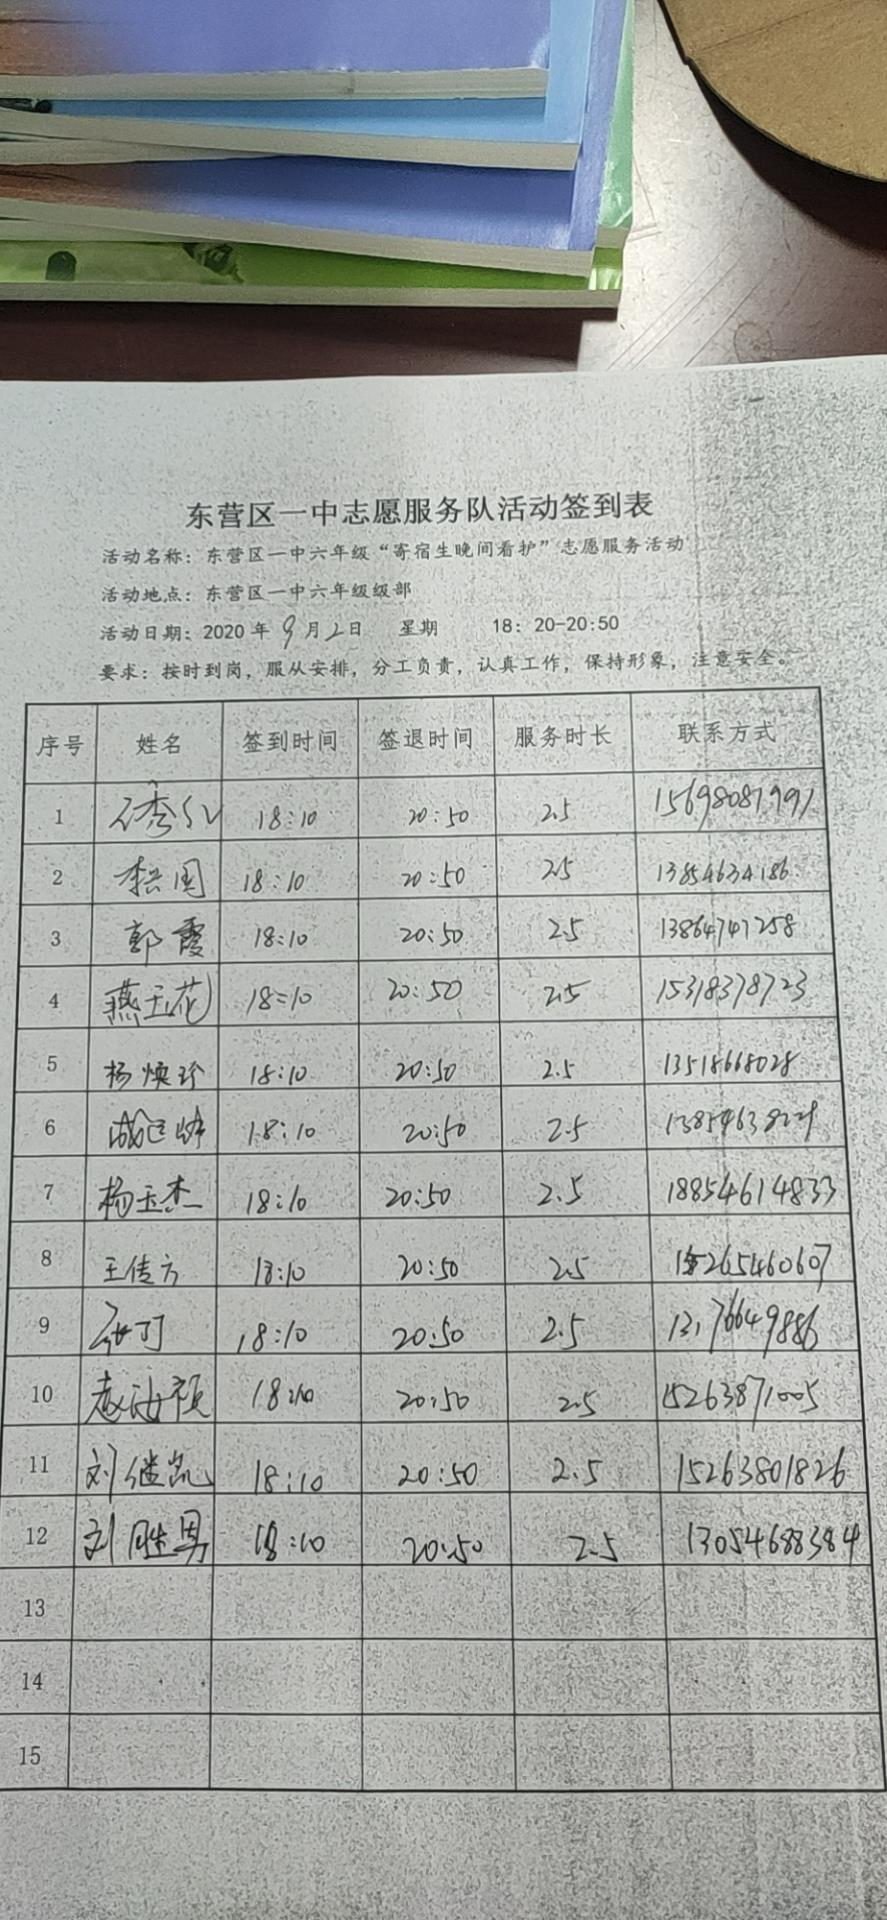 东营区一中志愿服务队活动签到表
活动名称：东营区一中六年级“寄宿生晚间看护”志愿服务活动
活动地点：东营区一中六年级级部
活动日期：2020年9月2日 星期 18：20-20:50
要求：按时到岗，服从安排，分工负责，认真工作，保持形象，注意安全。
序号 姓名 签到时间 签退时间 服务时长 联系方式
1 18:10 20:50 2.5 15698087991
2 李兴国 18:10 20:50 2.5 13854634186
3 郭霞 18:10 20:50 2.5 13864741258
4 燕玉花 18:10 20:50 2.5 15318378723
5 杨焕珍 18:10 20:50 2.5 13518668028
6 18:10 20:50 2.5
7 杨玉杰 18:10 20:50 2.5 18854614833
8 王传方 18:10 20:50 2.5 15265460607
9 张丁 18:10 20:50 2.5 13176649886
10 18:10 20:50 2.5 15263871005
11 刘继凯 18:10 20:50 2.5 15263801826
12 刘胜男 18:10 20:50 2.5 13054688384
13
14
15